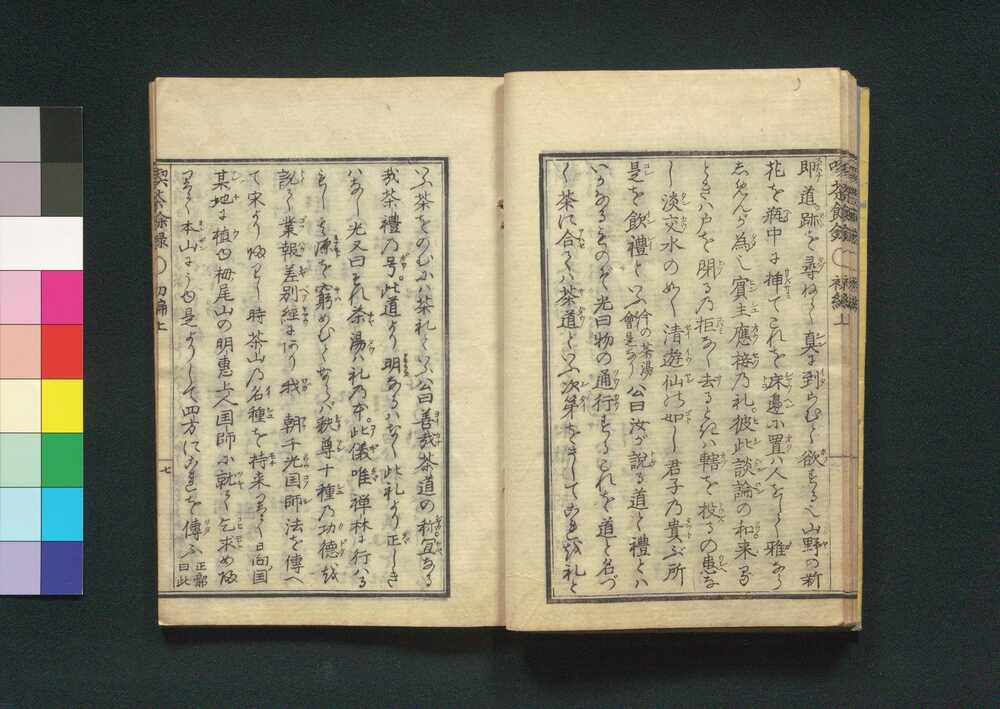 喫茶餘録 初編上
即道。跡を尋ねて真に到らむと欲するや山野の新
花を瓶中に挿てこれを床邊に置ハ人をして雅なら
しめんが為し賓主應接乃礼。彼此談論の和来る
ときハ戸を明る乃拒なく去るときハ轄を投るの患な
し淡交水のめく清遊仙の如し君子乃貴ぶ所
是を飲禮といふ今の茶湯會是なり公曰汝が説る道と禮とハ
いかなるものぞ光曰物の通行するこれを道と名づ
く茶に合してハ茶道といふ次第をさしてこれを礼と
いふ茶をのむにハ茶礼といふ公曰善哉茶道の称宜なる
我茶禮乃号。此道より明なるハなく此礼より正しき
ハなし光又曰それ茶湯ハ礼乃本。此儀唯禅林に行ハる
もし其源を窮めむとならバ秩尊十種乃功徳を
説て業報差別經にあり我 朝千光国師法を傳へ
て宋より帰りし時茶山乃名種を持来りて日向国
某地に植ゆ栂尾山の明惠上人国師に就て乞求め帰
りて本山にうゆ是よりして四方にこれを傳ふ 正鄰曰此
喫茶餘録 初編上
七